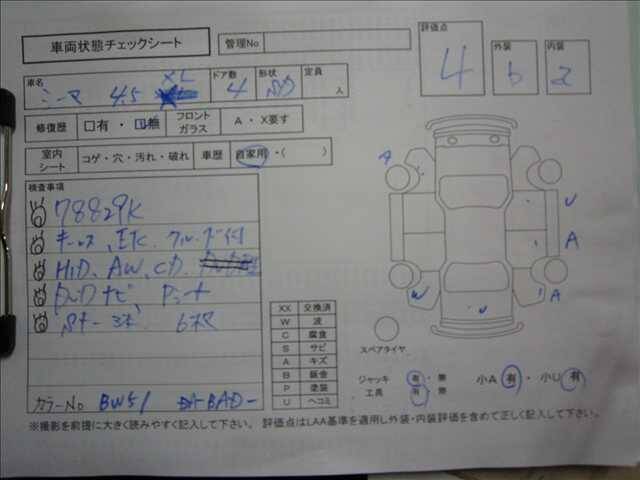 車両状態チェックシート 管理No 評価点 4 外装 b 内装 a
車名 シーマ 4.5 XL ドア数 4 形状 定員 人
修復歴 □有・□無 フロントガラス A・X要す
室内シート コゲ・穴・汚れ・破れ 車歴 自家用・( )
検査事項
78829K
キーレス、ETC、
HID、AW、CD、
カラーNo BW51
XX 交換済
W 波
C 腐食
S サビ
A キズ
B 鈑金
P 塗装
U ヘコミ
A
U
A
W
U
A
スペアタイヤ
ジャッキ 有・無
工具 有・無
小A 有・小U 有
※撮影を前提に大きく読みやすく記入して下さい。 評価点はLAA基準を適用し外装・内装評価を含めて正しく記入して下さい。